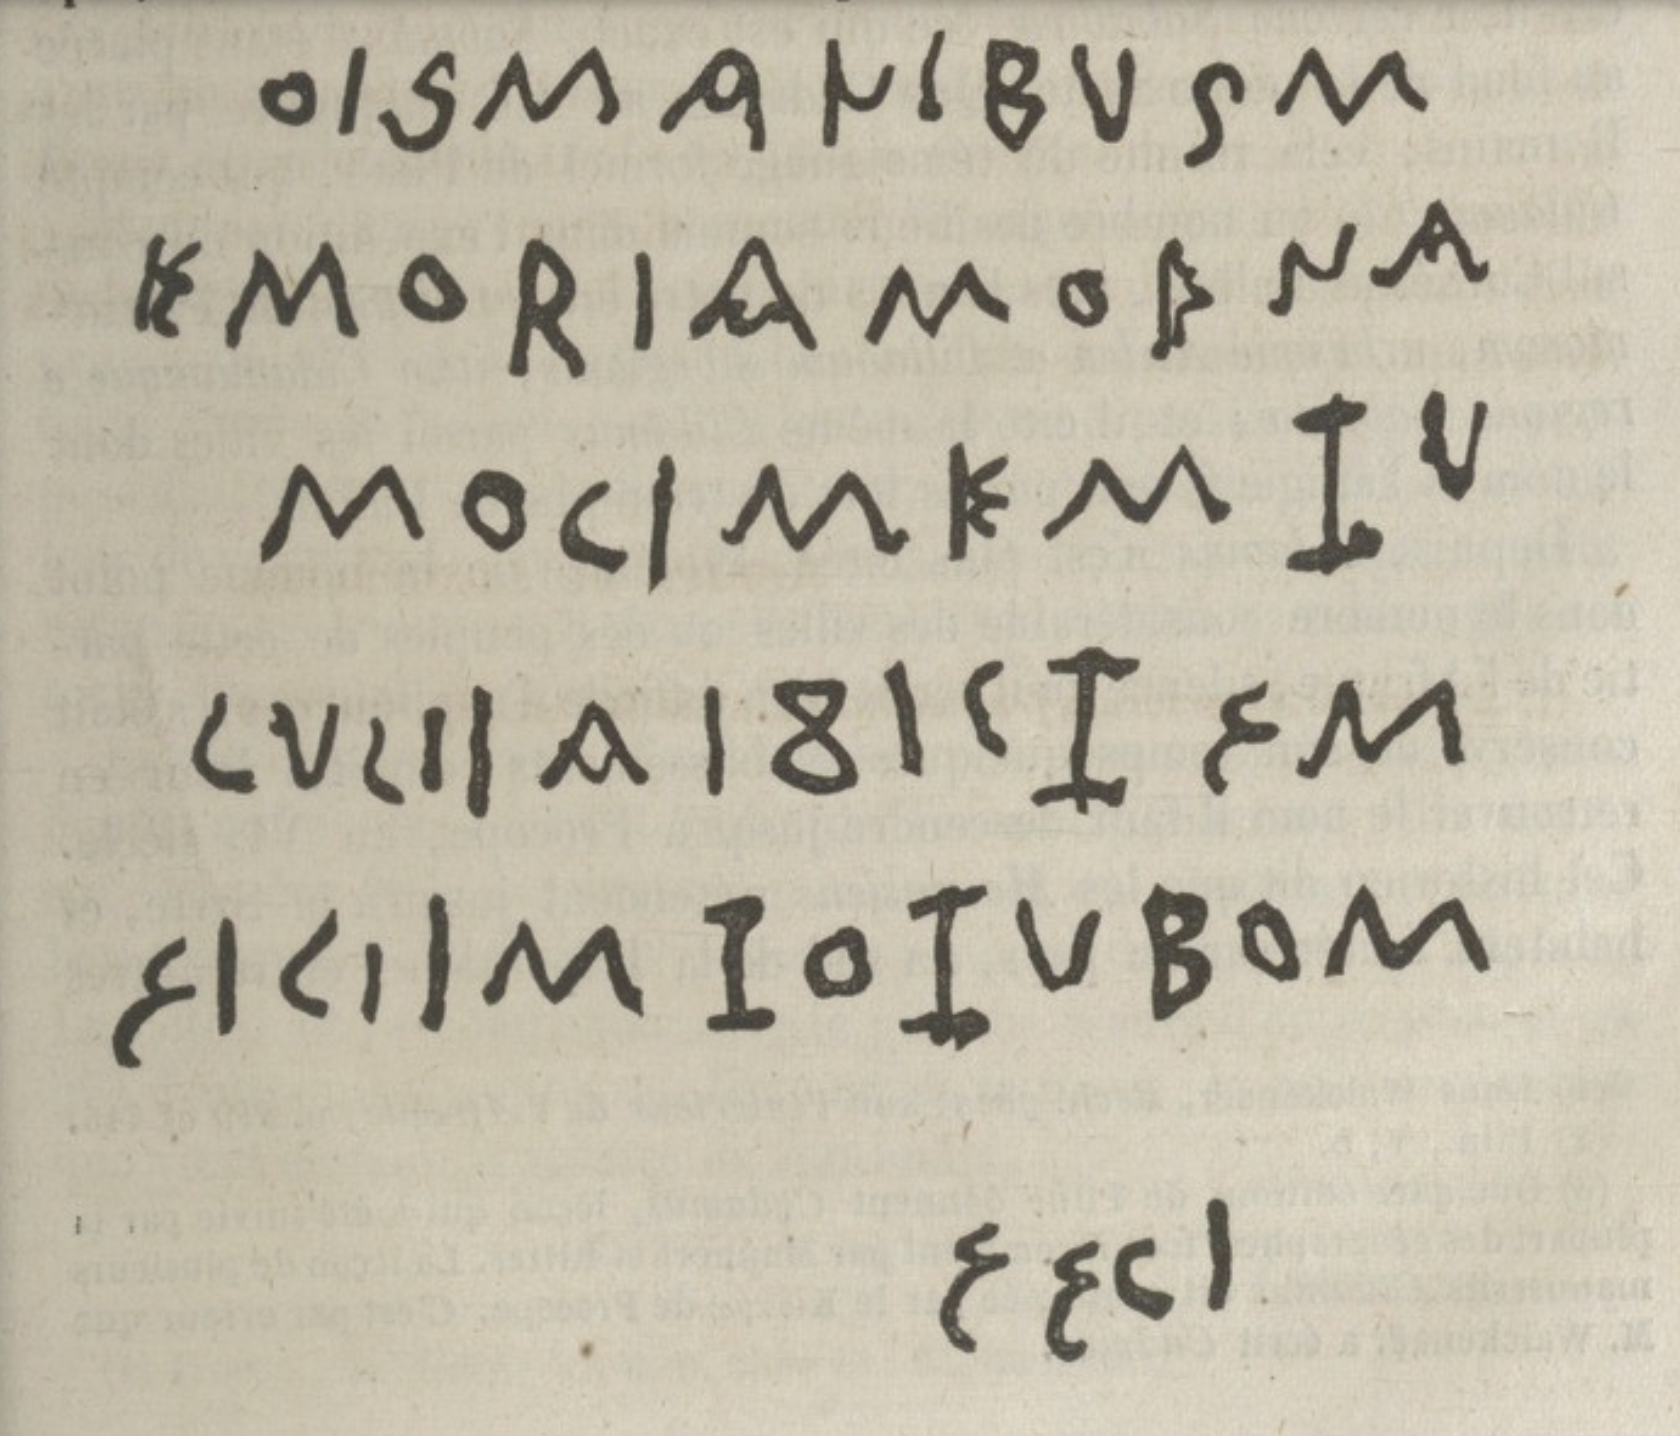 OISMANIBUSM
EMORIAMOENA
MOCIMEMIU
CUCIIAI8ICIEM
EICIIMIOIUBOM
EECI